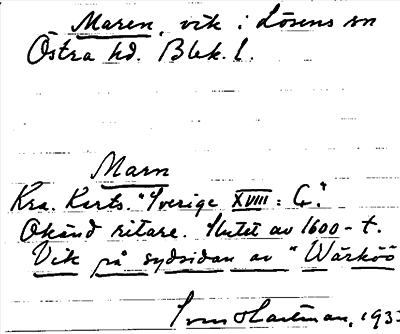 Maren, vik i Lösens sn
Östra hd. Blek. l.
Marn
Kra. Kartv. "Sverige XVIII: G."
Okänd ritare. Slutet av 1600-t.
Vik på sydsidan av "Wärköö
Sven Hartman, 193